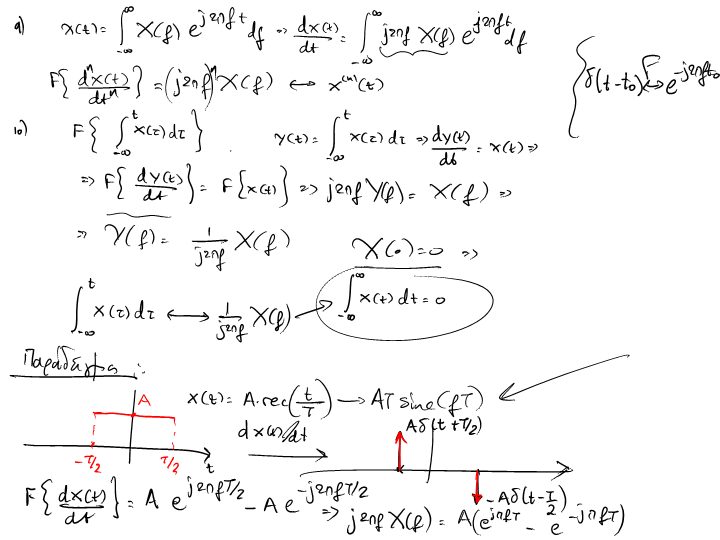 9) x(t) = ∫_{-∞}^{∞} X(f) e^{j2πft} df => dx(t)/dt = ∫_{-∞}^{∞} j2πf X(f) e^{j2πft} df
F{d^n x(t)/dt^n} = (j2πf)^n X(f) ↔ x^{(n)}(t)
δ(t-t_0) ↔^F e^{-j2πft_0}
10) F{∫_{-∞}^{t} x(τ) dτ} . y(t) = ∫_{-∞}^{t} x(τ) dτ => dy(t)/dt = x(t) =>
=> F{dy(t)/dt} = F{x(t)} => j2πf Y(f) = X(f) =>
=> Y(f) = 1/(j2πf) X(f) X(0) = 0 =>
∫_{-∞}^{t} x(τ) dτ ↔ 1/(j2πf) X(f) → ∫_{-∞}^{∞} x(t) dt = 0
Παράδειγμα :
A
x(t) = A.rec(t/T) → AT sinc(fT)
dx(t)/dt
Aδ(t+T/2)
-T/2 T/2 t
-Aδ(t-T/2)
F{dx(t)/dt} = A e^{j2πfT/2} - A e^{-j2πfT/2} => j2πf X(f) = A(e^{jπfT} - e^{-jπfT})